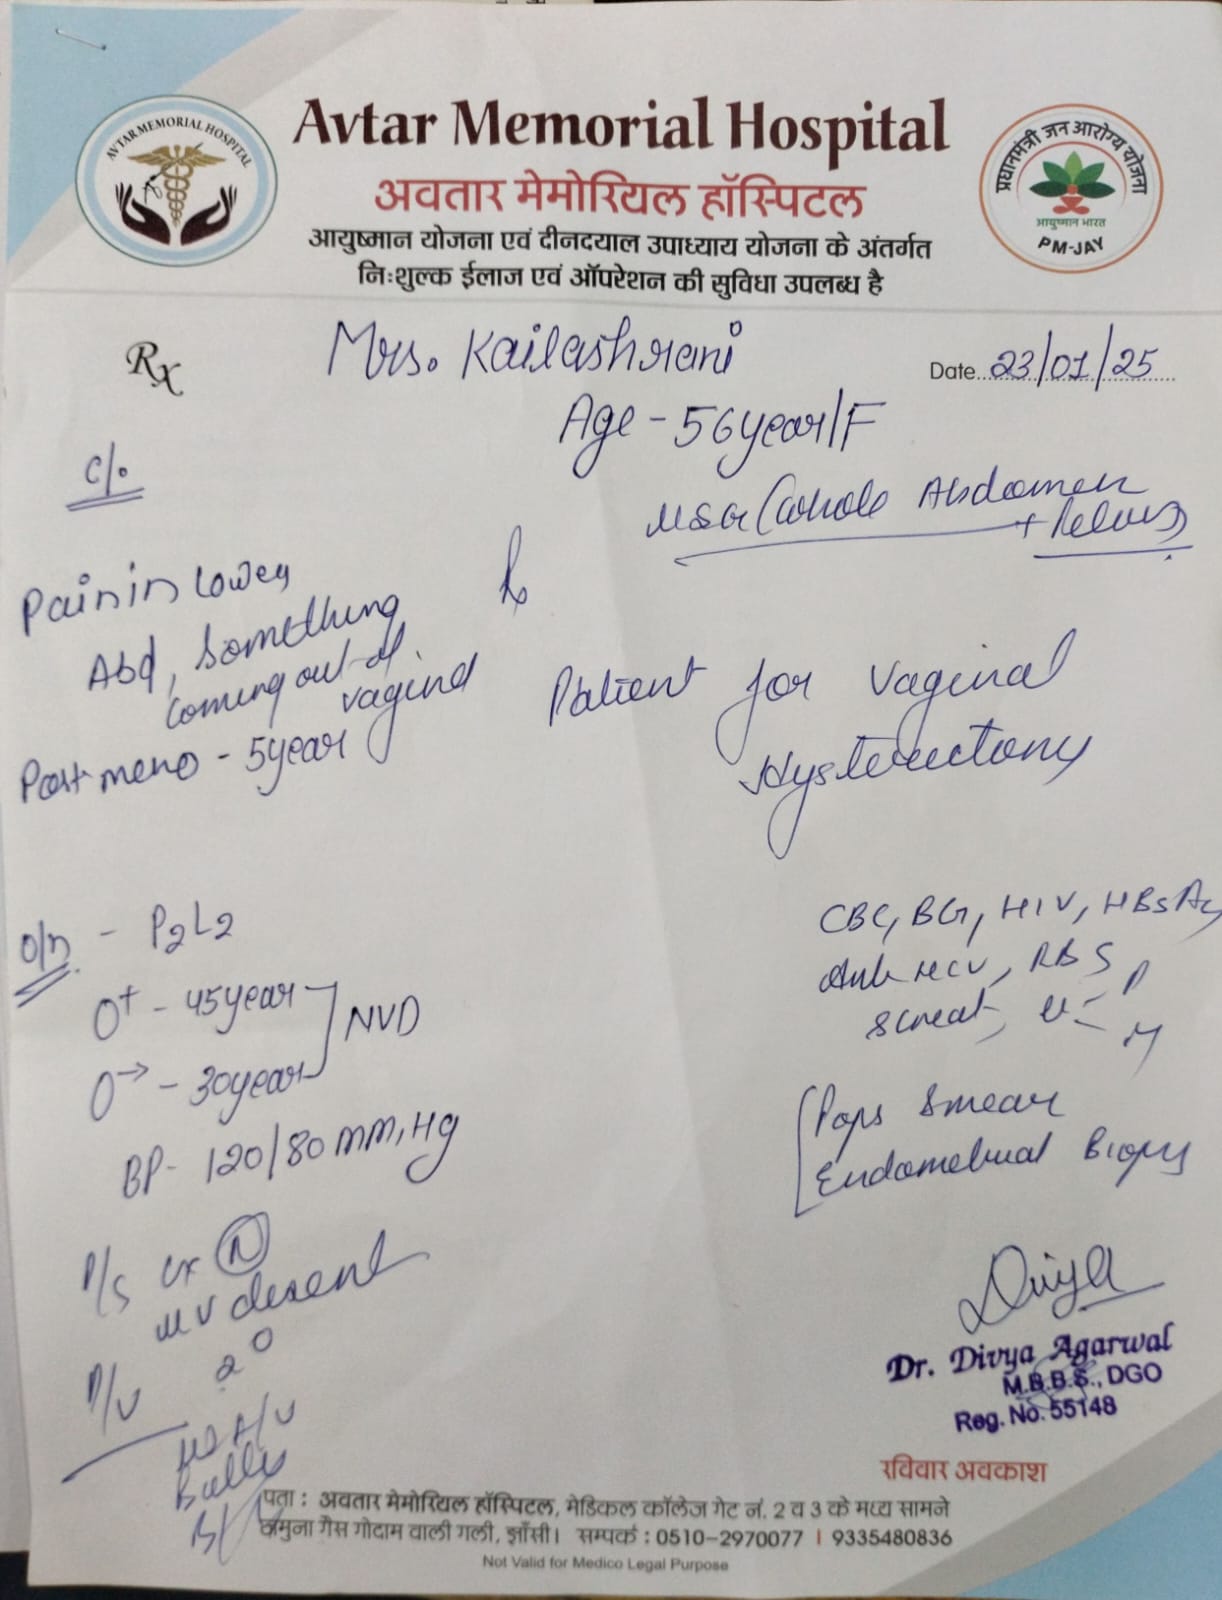 AVTAR MEMORIAL HOSPITAL
Avtar Memorial Hospital
अवतार मेमोरियल हॉस्पिटल
आयुष्मान योजना एवं दीनदयाल उपाध्याय योजना के अंतर्गत
निःशुल्क ईलाज एवं ऑपरेशन की सुविधा उपलब्ध है
प्रधानमंत्री जन आरोग्य योजना
आयुष्मान भारत
PM-JAY
Rx
Mrs. Kailashrani
Date 23/01/25
Age - 56year/F
C/o
USG (Whole Abdomen
+ Pelvis)
Pain in Lower
Abd, Something
coming out of
vagina
Post meno - 5year
Patient for Vaginal
Hysterectomy
O/h - P2L2
O+ - 45year
O→ - 30year
NVD
BP- 120/80 mm,Hg
P/S Cx N
UV desent
2°
P/V
CBC, BG, HIV, HBsAg
Anti HCV, RBS
Screat,
Paps Smear
Endometrial Biopsy
Divya
Dr. Divya Agarwal
M.B.B.S., DGO
Reg. No. 55148
रविवार अवकाश
पता : अवतार मेमोरियल हॉस्पिटल, मेडिकल कॉलेज गेट नं. 2 व 3 के मध्य सामने
जमुना गैस गोदाम वाली गली, झाँसी। सम्पर्क : 0510-2970077 | 9335480836
Not Valid for Medico Legal Purpose